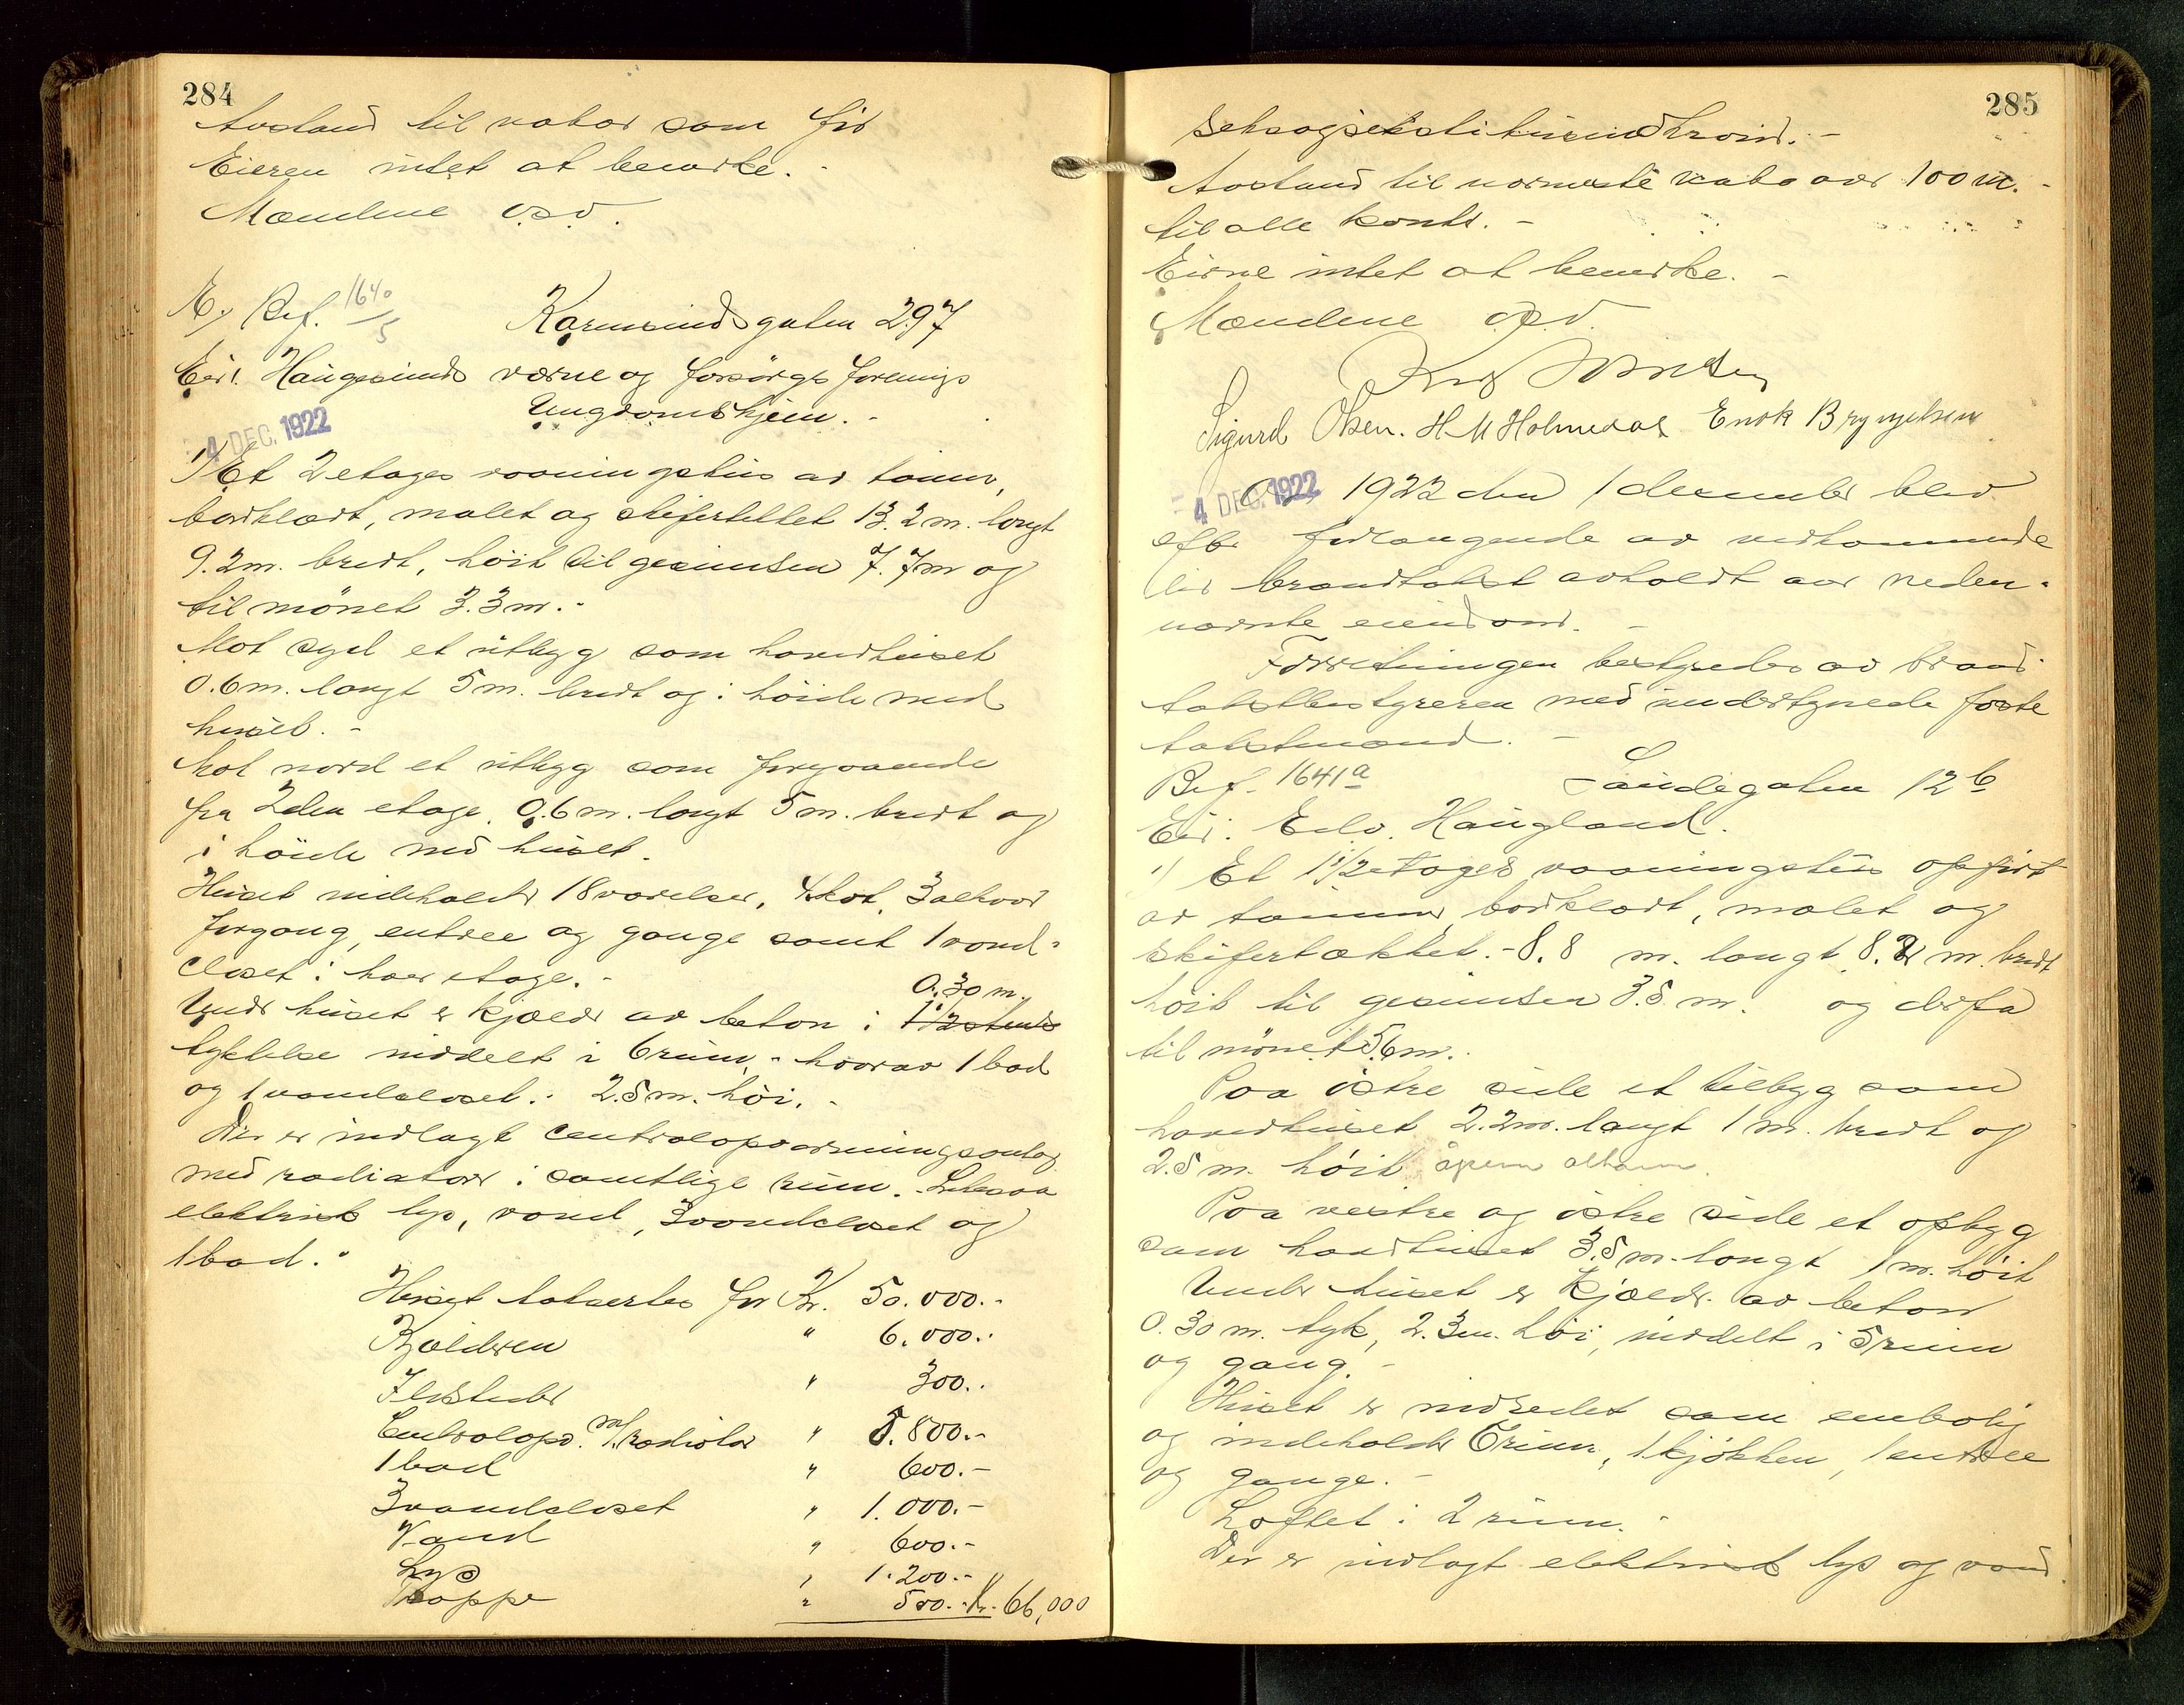 284
Avstand til nabor som før
Eieren intet at bemerke. -
Mændene o.s.v.
E, Bef. 1640/5 Karmsundsgaten 297
Eier: Haugesunds værne og forsörgsforenings
Ungdomshjem. -
4 DEC. 1922
1) Et 2 etages vaaningshus av tømmer,
bordklædt, malet og skifertekket 13.2 m. langt
9.2 m. bredt, höit til gesimsen 7.7 m og
til mönet 3.3 m. -
Mot syd et utbygg som hovedhuset
0.6 m. langt 5 m. bredt og i höide med
huset. -
Mot nord et utbygg som foregaaende
fra 2den etage, 0.6 m. langt 5 m. bredt og
i höide med huset.
Huset indeholder 18 værelser, 4 kot, 3 alkover
forgang, entree og gange samt 1 vand-
closet i hver etage. -
0.30 m.
Under huset er kjælder av beton i 1 1/2 stens
tykkelse inddelt i 6 rum, - hvorav 1 bad
og 1 vandcloset. : 2.5 m. höi. -
Der er indlagt centralopvarmningsanlæg
med radiatorer i samtlige rum. Likesaa
elektrisk lys, vand, 3 vandcloset og
1 bad. -
Huset taksertes for Kr. 50.000. -
Kjælderen " 6.000. -
Ildsteder " 300. -
Centralopv. m/ radiator " 5.800. -
1 bad " 600. -
3 vandcloset " 1.000. -
Vand " 600. -
Lys " 1.200. -
Trappe " 500. - Kr. 66,000
285
Seksogsekstitusindkroner. -
Avstand til nærmeste nabo over 100 m. -
til alle kanter. -
Eierne intet at bemerke. -
Mændene o.s.v.
Sigurd Olsen. H M Holmedal Enok Bryngelsen
4 DEC. 1922
Aar 1922 den 1 december blev
efter forlangende av vedkommende
eier brandtakst avholdt over neden-
nævnte eiendom. -
Forretningen bestyredes av brand-
takstbestyreren med undertegnede faste
takstmænd. -
Bef. 1641a Laudegaten 12 b
Eier: Edv. Haugland.
1) Et 1 1/2 etages vaaningshus opført
av tømmer, bordklædt, malet og
skifertækket. - 8.8 m. langt 8.2 m. bredt
höit til gesimsen 3.5 m. og derfra
til mönet 5.6 m. -
Paa østre side et tilbygg som
hovedhuset 2.2 m. langt 1 m. bredt og
2.5 m. höit. åpen altan.
Paa vestre og östre side et opbygg
som hovedhuset 3.5 m. langt 1 m. höit
Under huset er kjælder av beton
0.30 m. tyk, 2.3 m. höi, inddelt i 5 rum
og gang. -
Huset er indredet som enebolig
og indeholder 6 rum, 1 kjökken, 1 entree
og gange. -
Loftet i 2 rum. -
Der er indlagt elektrisk lys og vand.